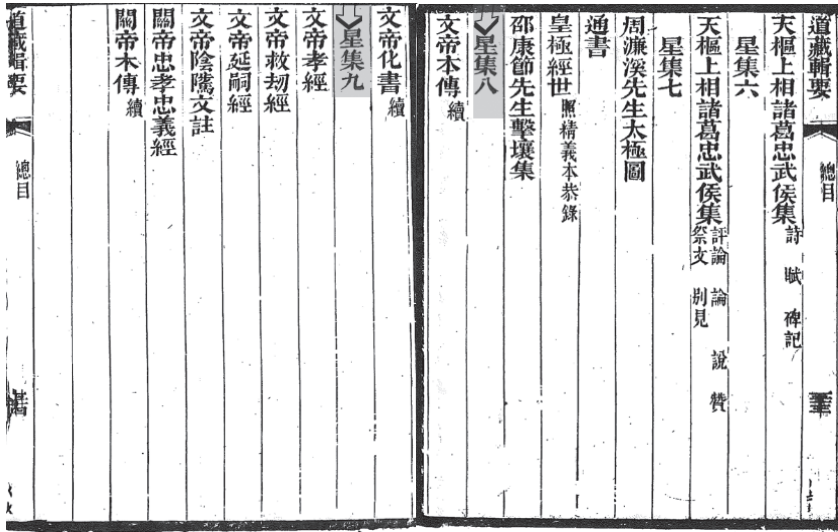 道藏輯要 總目
天樞上相諸葛忠武侯集 詩 賦 碑記
星集六
天樞上相諸葛忠武侯集 評論 論 說 贊 祭文 別見
星集七
周濂溪先生太極圖
通書
皇極經世 照精義本恭錄
邵康節先生擊壤集
星集八
文帝本傳 續
文帝化書 續
星集九
文帝孝經
文帝救劫經
文帝延嗣經
文帝陰隲文註
關帝忠孝忠義經
關帝本傳 續
道藏輯要 總目